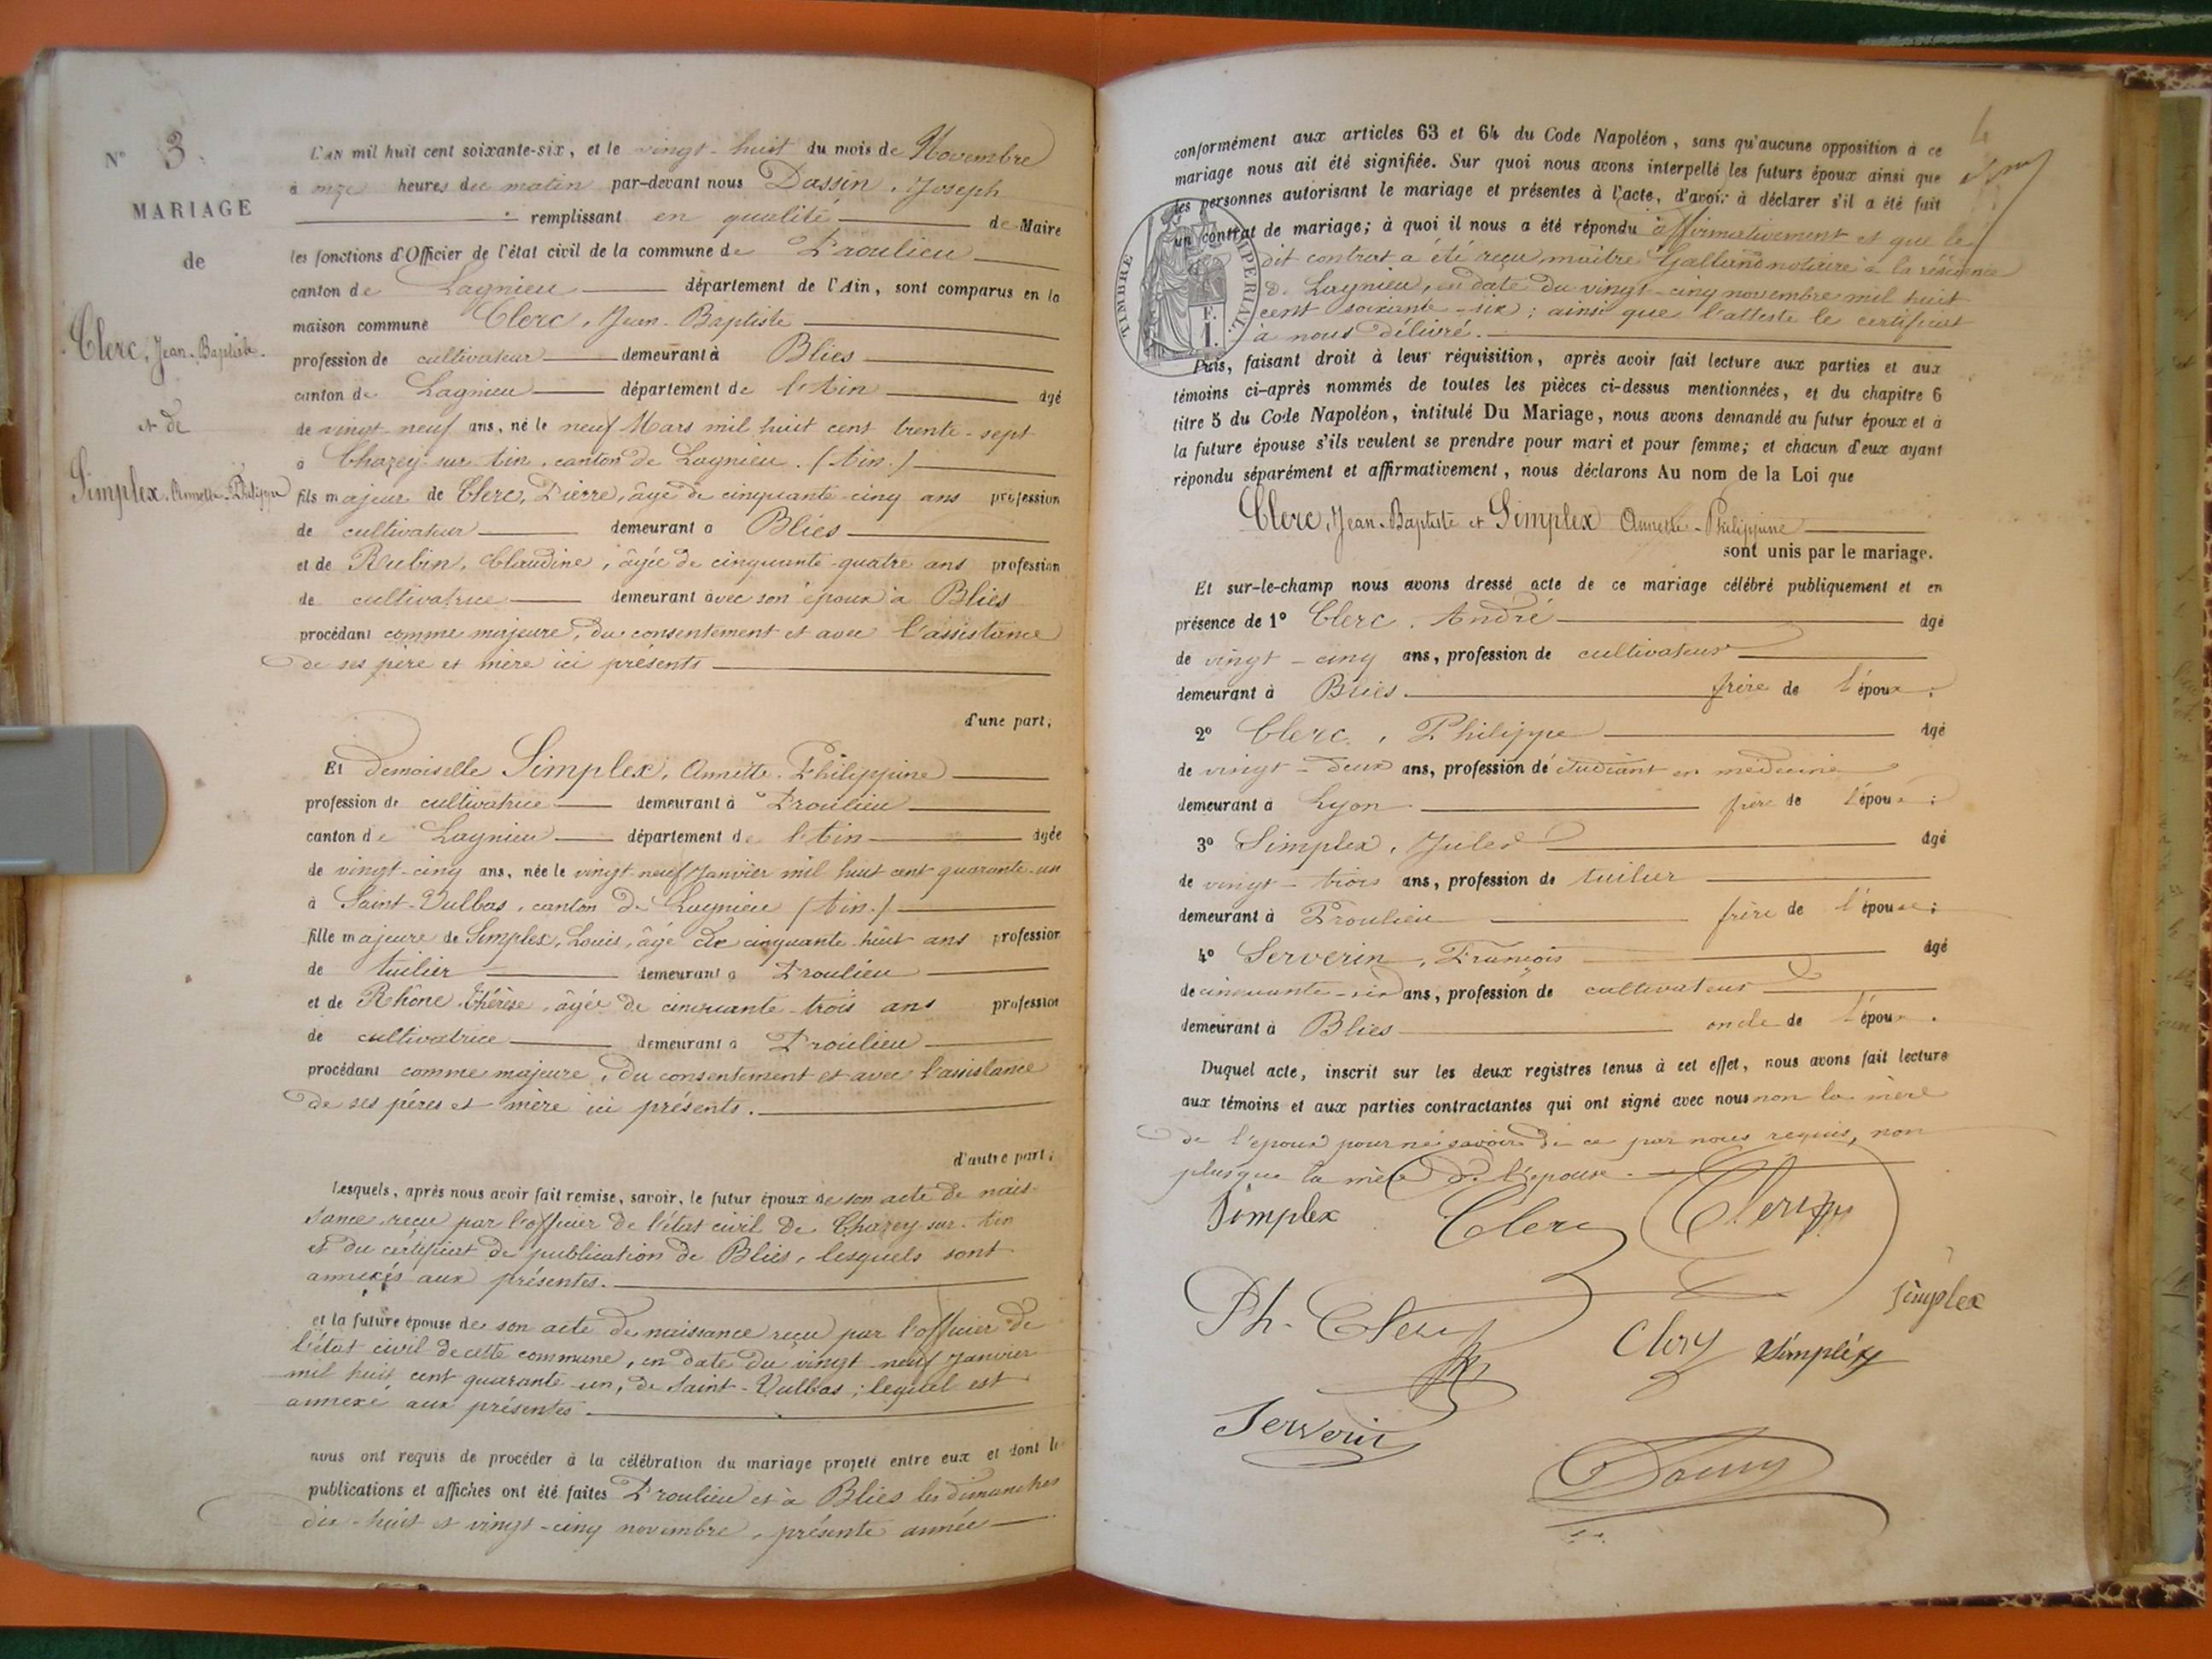 N° 3.
MARIAGE
de
Clerc, Jean-Baptiste.
et de
Simplex, Annette-Philippine
L'AN mil huit cent soixante-six, et le vingt-huit du mois de Novembre
à onze heures du matin par-devant nous Dassin, Joseph
remplissant en qualité de Maire
les fonctions d'Officier de l'état civil de la commune de Proulieu
canton de Lagnieu département de l'Ain, sont comparus en la
maison commune Clerc, Jean-Baptiste
profession de cultivateur demeurant à Blies
canton de Lagnieu département de l'Ain âgé
de vingt-neuf ans, né le neuf Mars mil huit cent trente-sept
à Chazey-sur-Ain, canton de Lagnieu (Ain.)
fils majeur de Clerc, Pierre, âgé de cinquante-cinq ans profession
de cultivateur demeurant à Blies
et de Rubin, Claudine, âgée de cinquante-quatre ans profession
de cultivatrice demeurant avec son époux à Blies
procédant comme majeure, du consentement et avec l'assistance
de ses père et mère ici présents
d'une part;
Et demoiselle Simplex, Annette-Philippine
profession de cultivatrice demeurant à Proulieu
canton de Lagnieu département de l'Ain âgée
de vingt-cinq ans, née le vingt-neuf Janvier mil huit cent quarante-un
à Saint-Vulbas, canton de Lagnieu (Ain.)
fille majeure de Simplex, Louis, âgé de cinquante-huit ans profession
de tuilier demeurant à Proulieu
et de Rhône Thérèse, âgée de cinquante-trois ans profession
de cultivatrice demeurant à Proulieu
procédant comme majeure, du consentement et avec l'assistance
de ses pères et mère ici présents.
d'autre part;
Lesquels, après nous avoir fait remise, savoir, le futur époux de son acte de nais-
sance reçu par l'officier de l'état civil de Chazey-sur-Ain
et du certificat de publication de Blies, lesquels sont
annexés aux présentes.
et la future épouse de son acte de naissance reçu par l'officier de
l'état civil de cette commune, en date du vingt-neuf Janvier
mil huit cent quarante-un, de Saint-Vulbas; lequel est
annexé aux présentes.
nous ont requis de procéder à la célébration du mariage projeté entre eux et dont les
publications et affiches ont été faites Proulieu et à Blies les dimanches
dix-huit et vingt-cinq novembre, présente année
4
conformément aux articles 63 et 64 du Code Napoléon, sans qu'aucune opposition à ce
mariage nous ait été signifiée. Sur quoi nous avons interpellé les futurs époux ainsi que
les personnes autorisant le mariage et présentes à l'acte, d'avoir à déclarer s'il a été fait
un contrat de mariage; à quoi il nous a été répondu affirmativement et que le
dit contrat a été reçu maître Galland notaire à la résidence
de Lagnieu, en date du vingt-cinq novembre mil huit
cent soixante-six; ainsi que l'atteste le certificat
à nous délivré.
TIMBRE IMPÉRIAL
F.
1.
Puis, faisant droit à leur réquisition, après avoir fait lecture aux parties et aux
témoins ci-après nommés de toutes les pièces ci-dessus mentionnées, et du chapitre 6
titre 5 du Code Napoléon, intitulé Du Mariage, nous avons demandé au futur époux et à
la future épouse s'ils veulent se prendre pour mari et pour femme; et chacun d'eux ayant
répondu séparément et affirmativement, nous déclarons Au nom de la Loi que
Clerc, Jean-Baptiste et Simplex Annette-Philippine
sont unis par le mariage.
Et sur-le-champ nous avons dressé acte de ce mariage célébré publiquement et en
présence de 1° Clerc, André âgé
de vingt-cinq ans, profession de cultivateur
demeurant à Blies. frère de l'époux;
2° Clerc, Philippe âgé
de vingt-deux ans, profession de étudiant en médecine
demeurant à Lyon frère de l'époux;
3° Simplex, Jules âgé
de vingt-trois ans, profession de tuilier
demeurant à Proulieu frère de l'épouse;
4° Serverin, François âgé
de cinquante-six ans, profession de cultivateur
demeurant à Blies oncle de l'époux.
Duquel acte, inscrit sur les deux registres tenus à cet effet, nous avons fait lecture
aux témoins et aux parties contractantes qui ont signé avec nous non la mère
de l'époux pour ne savoir de ce par nous requis, non
plus que la mère de l'épouse.
Simplex Clerc Clerc
Ph. Clerc Simplex
Clerc Simplex
Serverin